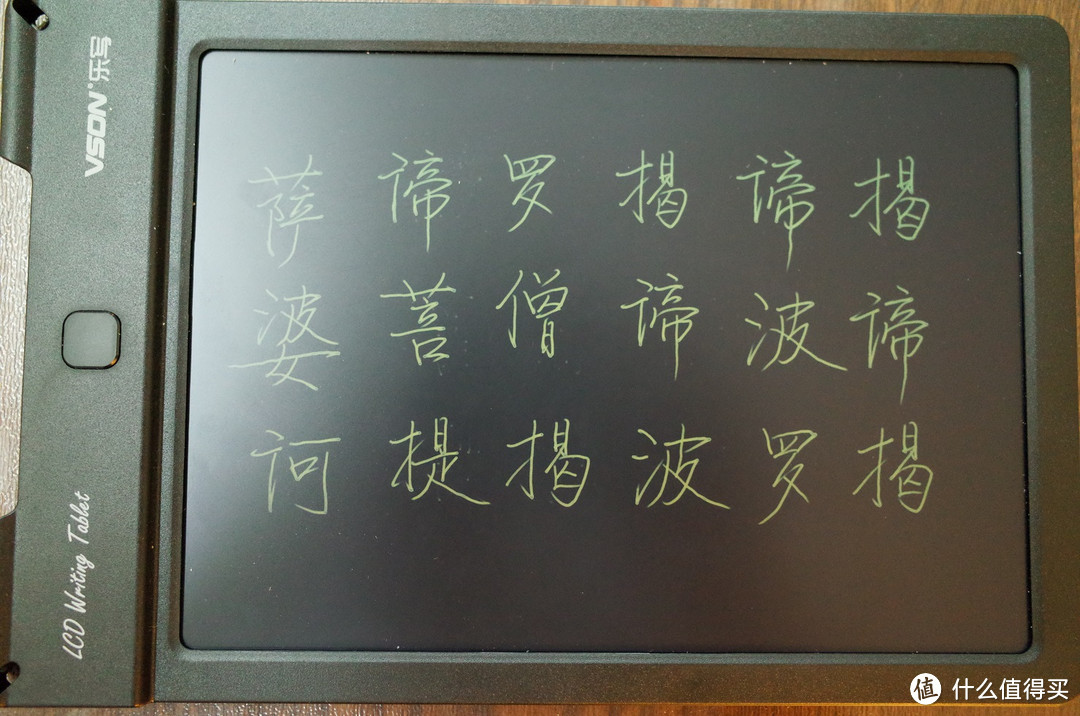 揭谛揭
谛波罗
揭谛波
罗僧揭
谛菩提
萨婆诃
VSON®乐写
LCD Writing Tablet
值 什么值得买